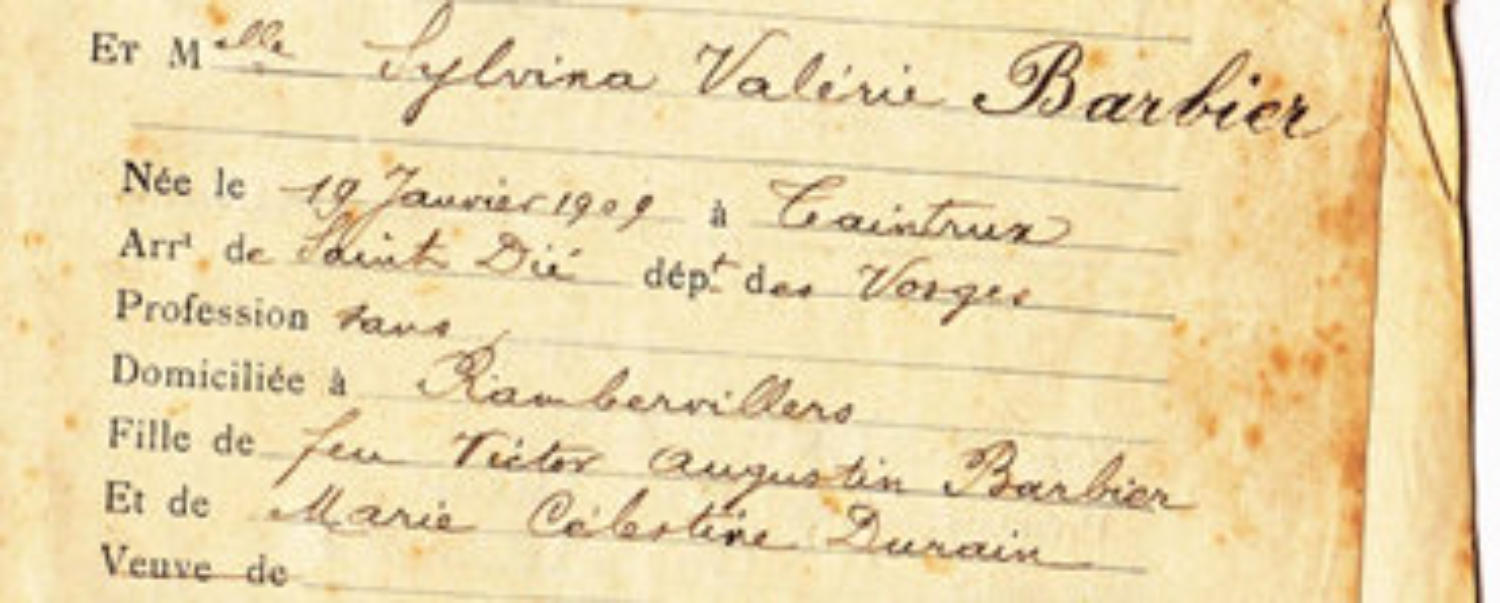 Et Mlle Sylvina Valérie Barbier
Née le 19 Janvier 1909 à Taintrux
Arrt de Saint Dié dépt des Vosges
Profession sans
Domiciliée à Rambervillers
Fille de feu Victor Augustin Barbier
Et de Marie Célestine Durain
Veuve de